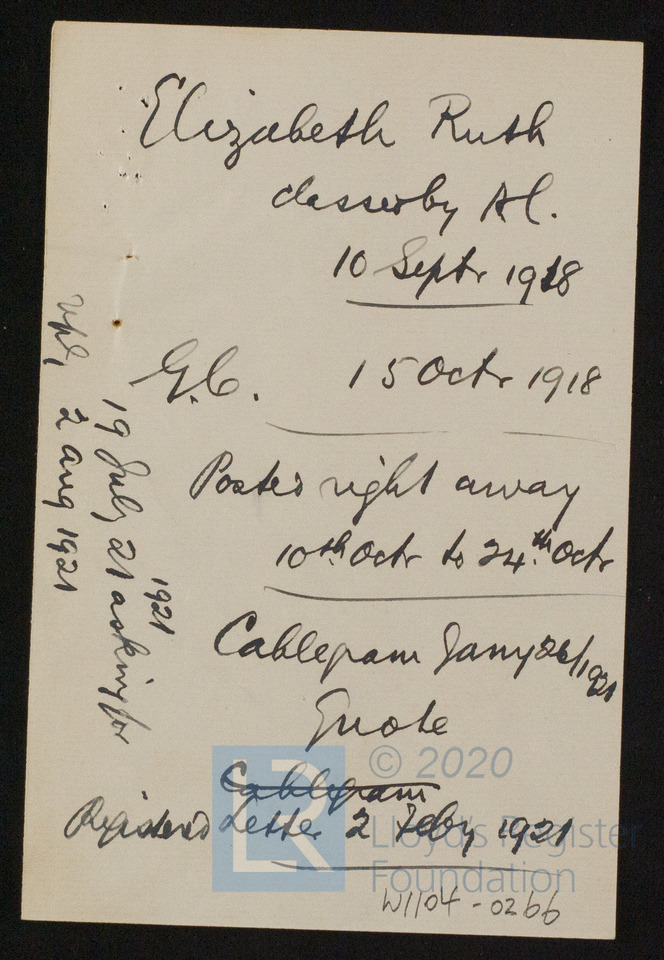 Elizabeth Ruth
classed by Al.
10 Septr 1918
G.C. 15 Octr 1918
Posted right away
10th Octr to 24th Octr
Cablegram Jany 26/1921
Quote
Cablegram
Registered Letter 2 Feby 1921
19 July 21 asking for
1921
2 aug 1921
© 2020
Lloyd's Register
Foundation
LR
W1104-0266